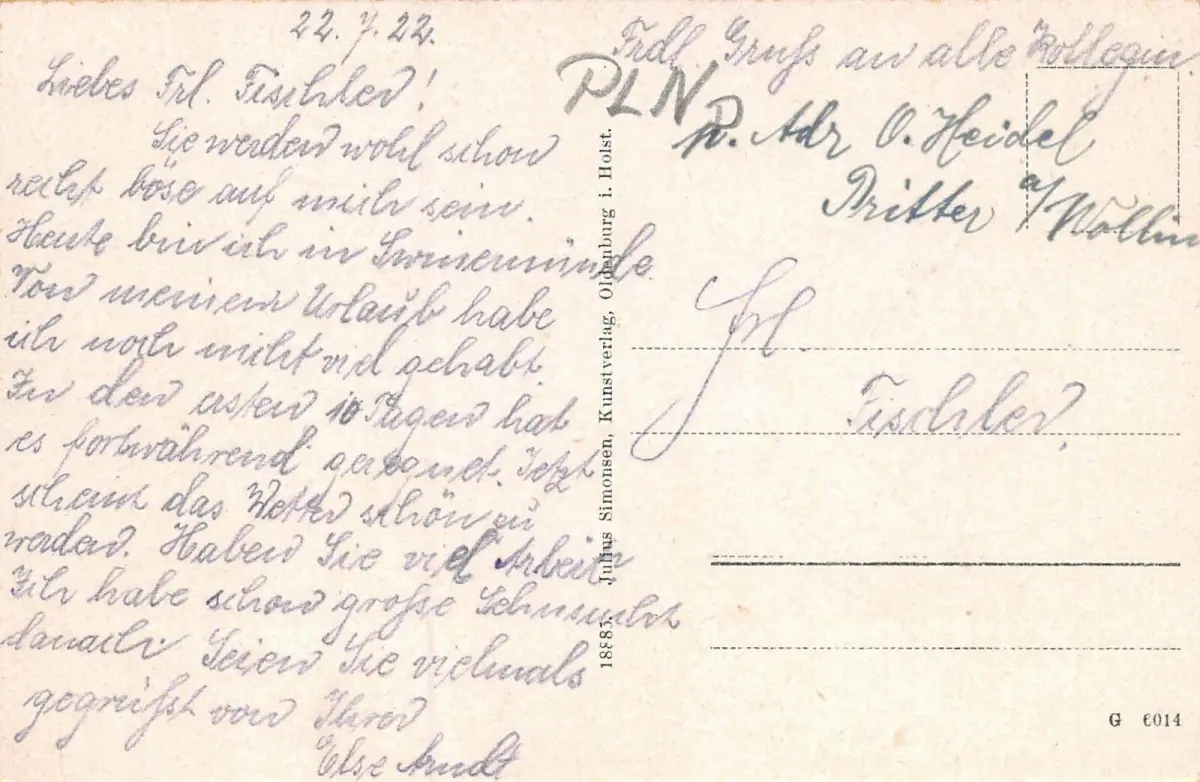 22. 7. 22.
Liebes Frl. Fischler!
Sie werden wohl schon
recht böse auf mich sein.
Heute bin ich in Swinemünde.
Von meinem Urlaub habe
ich noch nicht viel gehabt.
In den ersten 10 Tagen hat
es fortwährend geregnet. Jetzt
scheint das Wetter schön zu
werden. Haben Sie viel Arbeit?
Ich habe schon große Sehnsucht
danach. Seien Sie vielmals
gegrüßt von Ihrer
Else Arndt
Frdl. Gruß an alle Kollegin
PLN
p. Adr O. Heidel
Pritter a/Wollin
Frl.
Fischler,
18885. Julius Simonsen, Kunstverlag, Oldenburg i. Holst.
G 6014